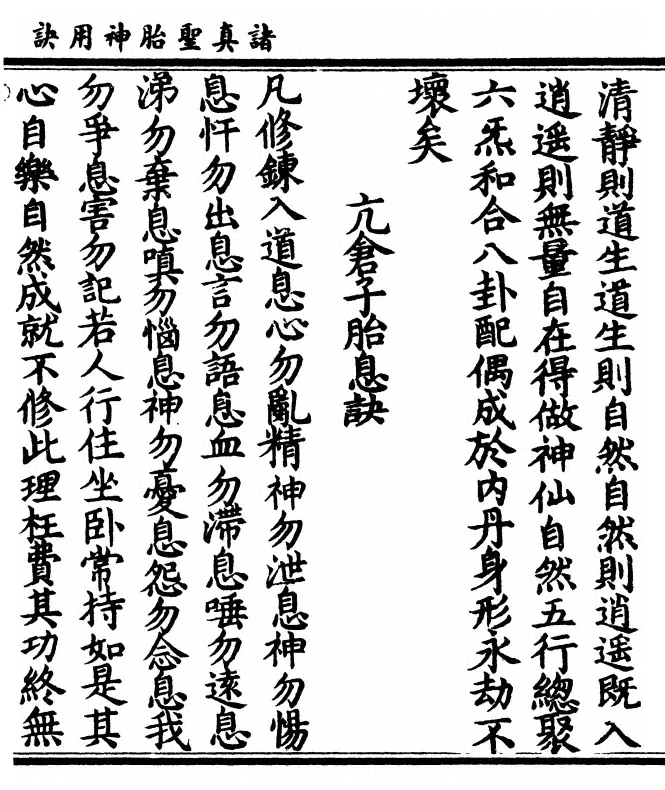 諸真聖胎神用訣
清靜則道生道生則自然自然則逍遥既入
逍遥則無量自在得做神仙自然五行總聚
六炁和合八卦配偶成於内丹身形永劫不
壞矣
亢倉子胎息訣
凡修鍊入道息心勿亂精神勿泄息神勿惕
息忓勿出息言勿語息血勿滯息唾勿遠息
涕勿棄息嗔勿惱息神勿憂息怨勿念息我
勿爭息害勿記若人行住坐卧常持如是其
心自樂自然成就不修此理枉費其功終無